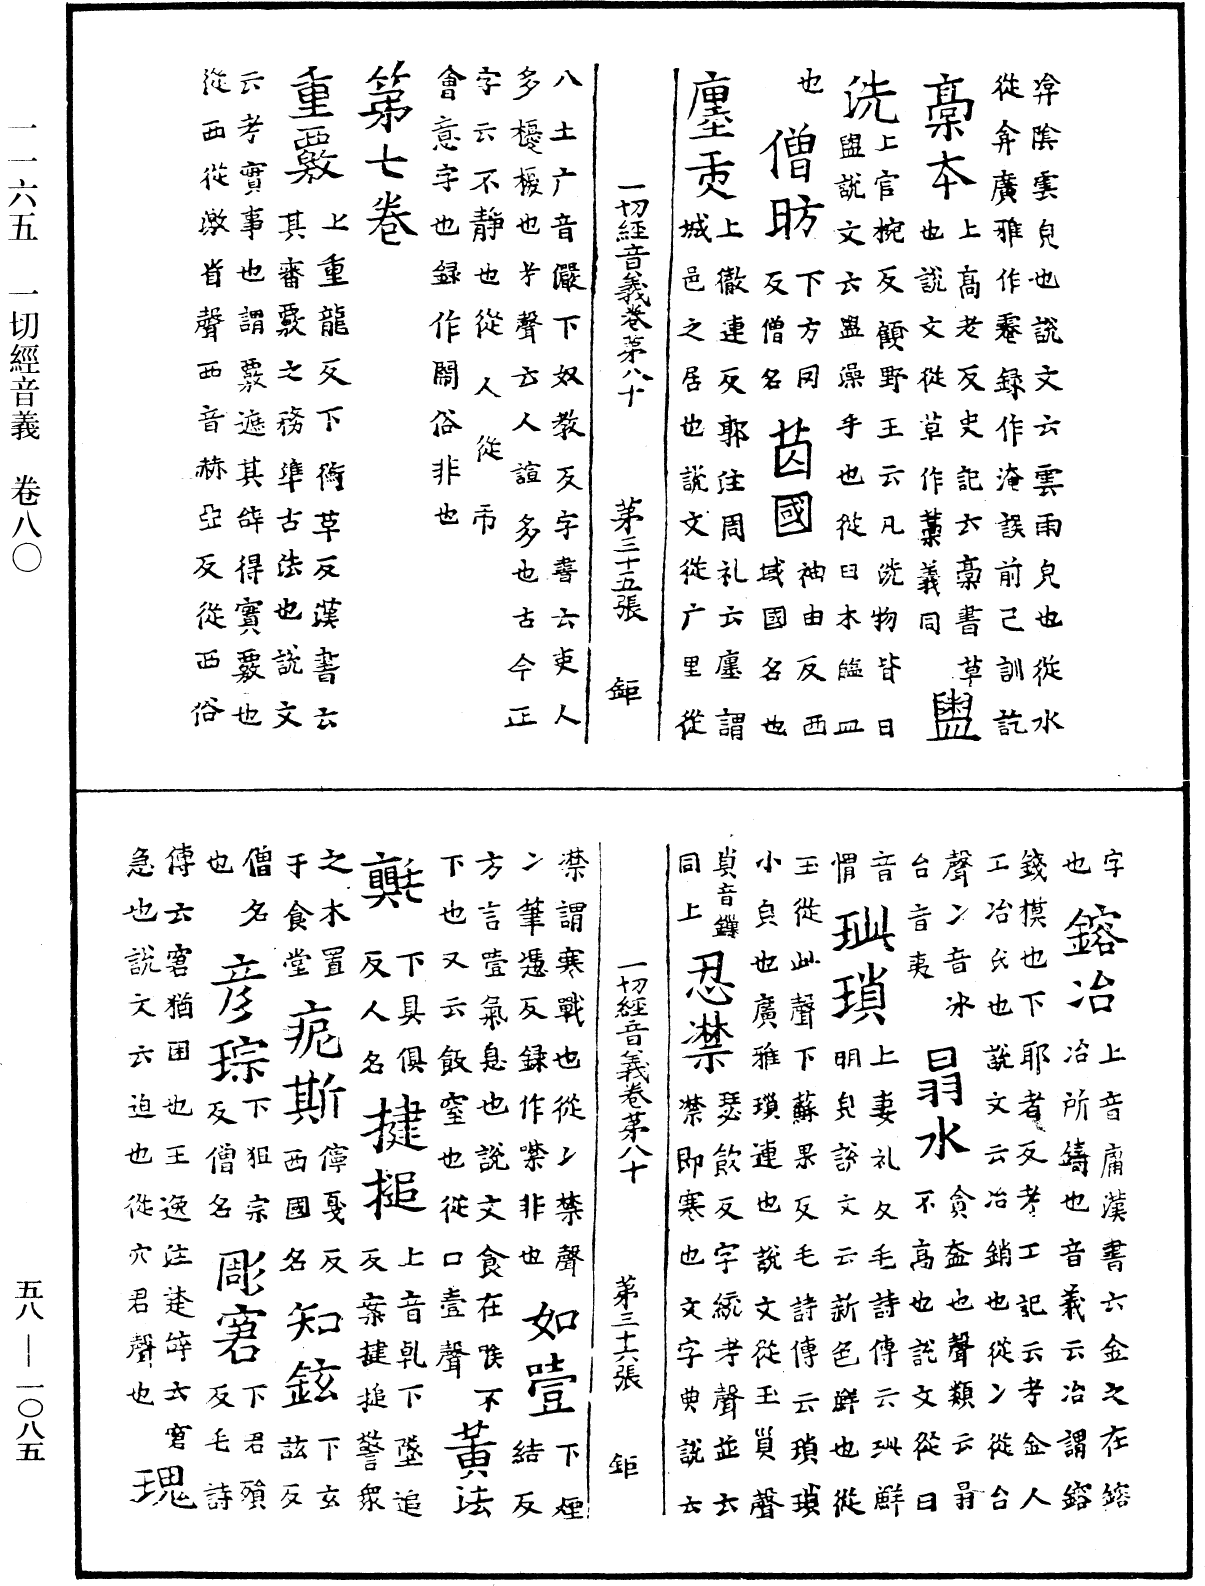 弇陰雲皃也說文云雲雨皃也從水
從弇廣雅作霮録作淹誤前已訓訖
藁本 上高老反史記云藁書草
也說文從草作藁義同 盥
洗 上官椀反顧野王云凡洗物皆曰
盥說文云盥澡手也從臼水臨皿
也 僧昉 下方罔反僧名 苬國 袖由反西域國名也
廛贡 上徹連反鄭注周礼云廛謂
城邑之居也說文從广里從
一切經音義卷第八十 第三十五張 鉅
八土广音儼下奴教反字書云吏人
多櫌櫌也考聲云人諠多也古今正
字云不靜也從人從市
會意字也録作閙俗非也
第七卷
重覈 上重龍反下衡革反漢書云
其審覈之務準古法也說文
云考實事也謂覈遮其辝得實覈也
從西從敫省聲西音赫亞反從西俗
字
也 鎔冶 上音庸漢書云金之在鎔
冶所鑄也音義云冶謂鎔
錢模也下耶者反考工記云考金人
工冶氏也說文云冶銷也從冫從台
聲冫音冰
台音夷 曻水 貪盍也聲類云曻
不高也說文從日
音 上妻礼反毛詩傳云玼鮮
玼瑣 㥜明皃說文云新色鮮也從
玉從此聲下蘇果反毛詩傳云瑣瑣
小皃也廣雅瑣連也說文從玉𧴪聲
𧴪音鏁
同上 忍㘅 瑟飲反字統考聲並云
㘅即寒也文字典說云
一切經音義卷第八十 第三十六張 鉅
㘅謂寒戰也從冫禁聲
冫筆憑反録作噤非也 如噎 下煙結反
方言噎氣息也說文食在喉不
下也又云飯窒也從口壹聲 黃法
㲲 下具俱反人名 揵搥 上音乹下墜追反案揵搥警衆
之木置
于食堂 㾆斯 停戛反西國名 知鉉 下玄茲反
僧名
也 彦琮 下狙宗反僧名 彫窘 下君殞反毛詩
傳云窘猶困也王逸注楚辝云窘
急也說文云迫也從穴君聲也 瑰
一一六五 一切經音義 卷八〇
五八—一〇八五